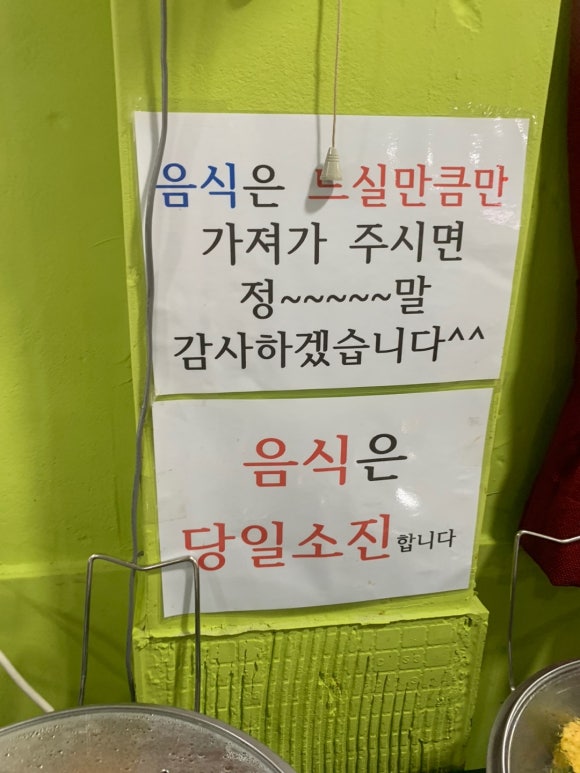 음식은 드실만큼만
가져가 주시면
정~~~~~말
감사하겠습니다^^
음식은
당일소진합니다